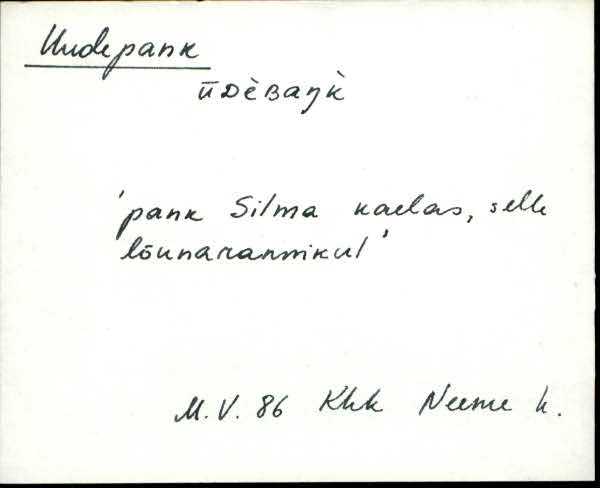 Uudepank
ūᴅèʙaŋk̀
'pank Silma kaelas, selle
lõunarannikul'
M. V. 86 Khk Neeme k.